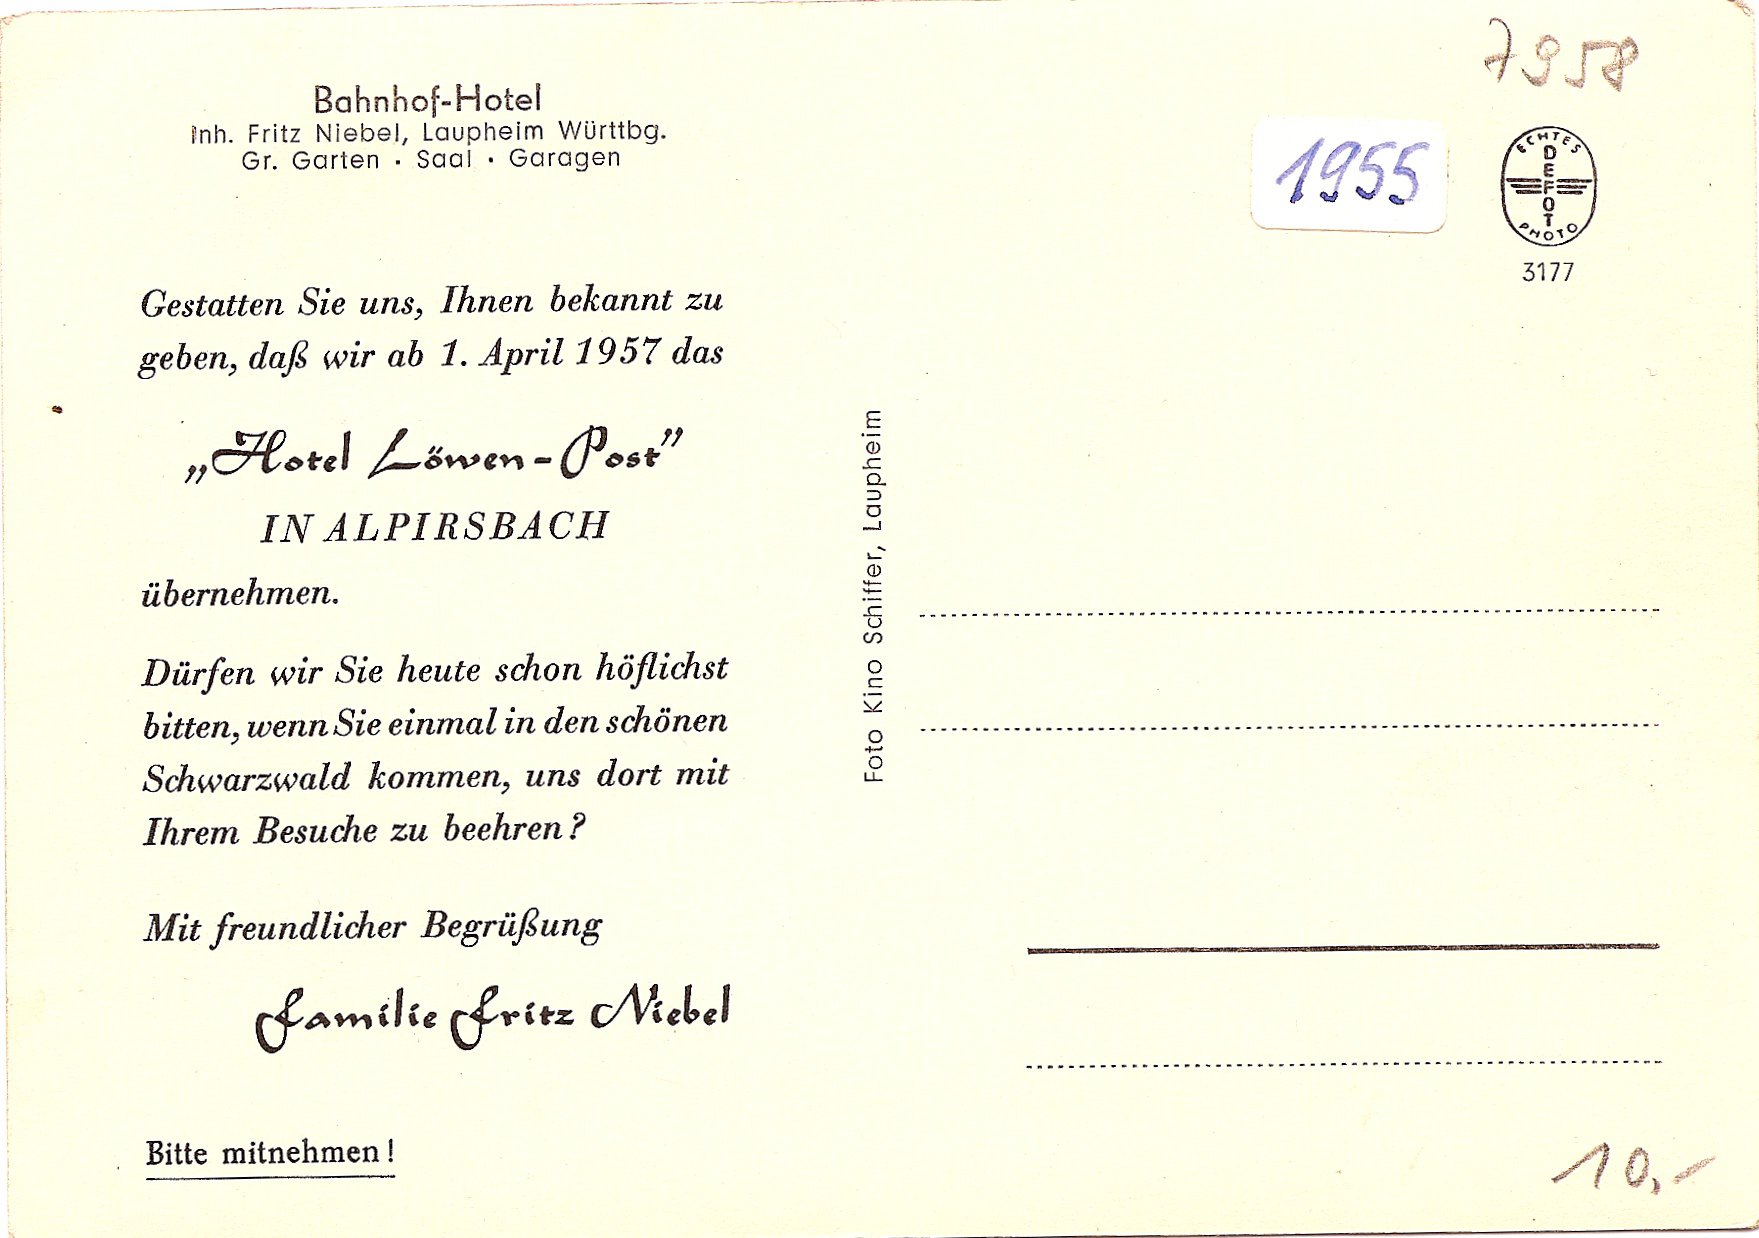 Bahnhof-Hotel
Inh. Fritz Niebel, Laupheim Württbg.
Gr. Garten · Saal · Garagen
Gestatten Sie uns, Ihnen bekannt zu
geben, daß wir ab 1. April 1957 das
„Hotel Löwen-Post”
IN ALPIRSBACH
übernehmen.
Dürfen wir Sie heute schon höflichst
bitten, wenn Sie einmal in den schönen
Schwarzwald kommen, uns dort mit
Ihrem Besuche zu beehren?
Mit freundlicher Begrüßung
Familie Fritz Niebel
Bitte mitnehmen!
Foto Kino Schiffer, Laupheim
7958
1955
ECHTES
DEFOT
PHOTO
3177
10,-